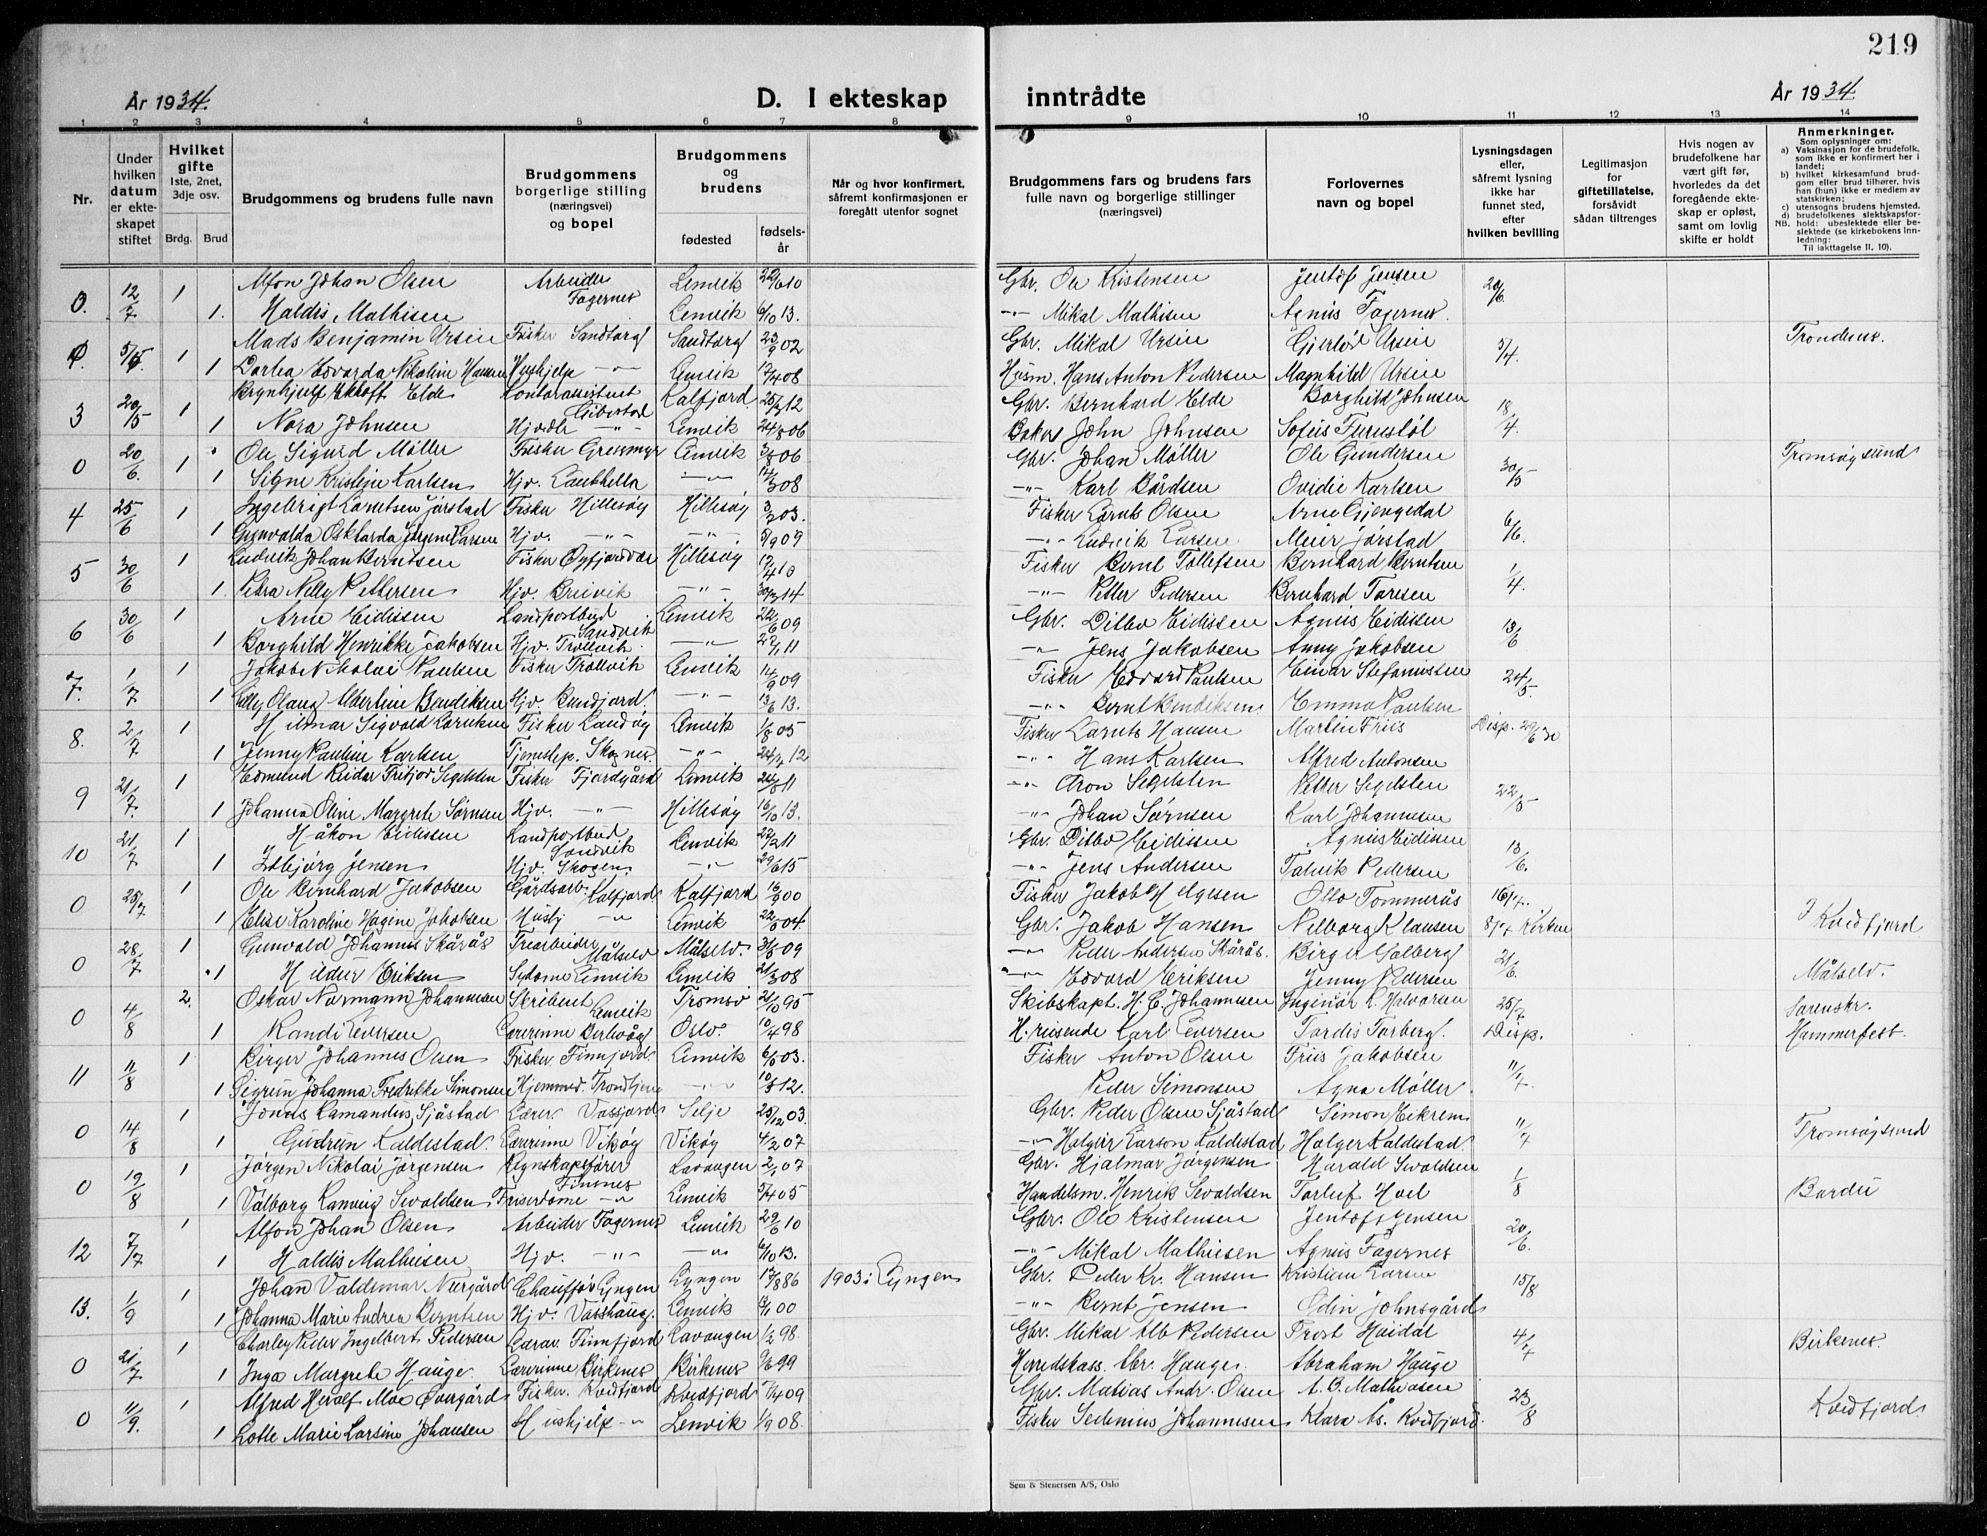 219
År 1934.
D. I ekteskap inntrådte
År 1934
1 2 3 4 5 6 7 8 9 10 11 12 13 14
Nr.
Under hvilken datum er ekteskapet stiftet
Hvilket gifte
1ste, 2net, 3dje osv.
Brdg. Brud
Brudgommens og brudens fulle navn
Brudgommens borgerlige stilling (næringsvei) og bopel
Brudgommens og brudens
fødested
fødselsår
Når og hvor konfirmert, såfremt konfirmasjonen er foregått utenfor sognet
Brudgommens fars og brudens fars fulle navn og borgerlige stillinger (næringsvei)
Forlovernes navn og bopel
Lysningsdagen eller, såfremt lysning ikke har funnet sted, efter hvilken bevilling
Legitimasjon for giftetillatelse, forsåvidt sådan tiltrenges
Hvis nogen av brudefolkene har vært gift før, hvorledes da det foregående ekteskap er opløst, samt om lovlig skifte er holdt
Anmerkninger.
Som oplysninger om:
a) Vaksinasjon for de brudefolk, som ikke er konfirmert her i landet;
b) hvilket kirkesamfund brudgom eller brud tilhører, hvis han (hun) ikke er medlem av statskirken;
c) utensogns brudens hjemsted.
d) brudefolkenes slektskapsforhold: ubeslektede eller beslektede (se kirkebokens innledning:
NB.
Til iakttagelse II, 10).
0. 12/7 1 Alfon Johan Olsen Arbeider Fagernes Lenvik 29/6 10 Gbr. Ole Kristensen Jentof Jensen 20/6
1. Haldis Mathisen Lenvik 6/10 13. -"- Mikal Mathisen Agnus Fagernes
5/5 1 Mads Benjamin Ursin Fisker Sandtorg Sandtorg 23/9 02 Gbr. Mikal Ursin Gjerløv Ursin 5/4 Trondenes.
1 Dortea Edvarda Nikoline Hansen Hushjelp -"- Lenvik 17/4 08 Husm. Hans Anton Pedersen Magnhild Ursin
3 20/5 1 Brynhjulf Ekhoft Elde Kontorassistent Gibostad Kalfjord 25/2 12 Gbr. Bernhard Elde Borghild Johnsen 18/4
1 Nora Johnsen Hjv. -"- Lenvik 24/8 06 Baker John Johnsen Sofus Furustøl
0 20/6 1 Ole Sigurd Møller Fisker Grasmyr Lenvik 3/8 06 Gbr. Johan Møller Ole Gundersen 30/5 Tromsøysund
1 Signe Kristine Karlsen Hjv. Laukhella -"- 14/3 08 -"- Karl Bårdsen Ovidie Karlsen
4 25/6 1 Ingebrigt Loruntsen Jørstad Fisker Hillesøy Hillesøy 3/2 03. Fisker Lornts Olsen Arne Gjengedal 6/6
1 Gunvalda Osklarda Jørgine Larsen Hjv. -"- -"- 5/9 09 -"- Ludvik Larsen Meier Jørstad
5 30/6 1 Ludvik Johan Berntsen Fisker Øyfjordvær Hillesøy 17/4 10 Fisker Bernt Tollefsen Bernhard Berntsen 1/4
1. Petra Nelly Pettersen Hjv. Breivik -"- 30/3 14 -"- Petter Pedersen Bernhard Toresen
6 30/6 1 Arne Eidissen Landpostbud Sandvik Lenvik 22/6 09 Gbr. Ditlev Eidissen Agnus Eidissen 13/6
1 Borghild Henrikke Jakobsen Hjv. Trollvik -"- 22/1 11 -"- Jens Jakobsen Anny Jakobsen
7. 1/7 1 Jakob Nikolai Paulsen Fisker Trollvik Lenvik 14/9 09 Fisker Edvard Paulsen Einar Stefanussen 24/5
1 Elly Olaug Albertine Bendiksen Hjv. Bundjord -"- 13/6 13. -"- Bernt Bendiksen. Emma Paulsen
8. 2/7 1 Hilmar Sigvald Lorntsen Fisker Sandøy Lenvik 1/8 05 Fisker Lornts Hansen Martin Friis Disp. 29/6 30
1 Jenny Pauline Karlsen Tjenestep. Skognes. -"- 24/7 12 -"- Hans Karlsen Alfred Antonsen
9 21/7 1 Edmund Reidar Fritjov Segelsten Fisker Fjordgård Lenvik 26/8 11 -"- Aron Segelsten Petter Segelsten 22/5
1 Johanna Oline Margrete Sørensen Hjv. -"- Hillesøy 16/10 13. -"- Johan Sørnsen Karl Johannesen
10 21/7 1 Håkon Eidissen Landpostbud Sandvik Lenvik 22/2 11 Gbr. Ditlev Eidissen Agnus Eidissen 13/6
1 Ingbjørg Jensen Hjv. Skogen -"- 29/6 15 -"- Jens Andersen Talvik Pedersen
0 25/7 1 Ole Bernhard Jakobsen Gårdsarb. Kalfjord Kalfjord 16/9 00 Fisker Jakob Helgesen Otto Tommerås 16/7.
1 Elise Karoline Hagene Jakobsen Husbj -"- Lenvik 22/5 04. Gbr. Jakob Hansen Nelborg Klausen 8/7 Kirken I Kvedfjord
0 28/7 1 Gunvald Johannes Skårås Trearbeider Målselv Målselv. 31/5 09 -"- Peder Andersen Skårås. Birger Solberg 21/6
1 Hildur Eriksen Sydame Lenvik Lenvik 21/3 08 -"- Edvard Eriksen Jenny Pedersen Målselv.
0 4/8 2. Oskar Normann Johannesen Skribent Lenvik Tromsø 21/10 95 Skibskapt. H. C. Johannesen Ingeniør L. Halvorsen 25/7 Sorenskr.
1 Randi Eversen Lærerinne Berlevåg Oslo. 10/4 98 H. reisende Carl Eversen Tordis Torberg. Disp. Hammerfest.
11 11/8 1 Birger Johannes Olsen Fisker Finnfjord Lenvik 6/6 03. Fisker Anton Olsen Friis Jakobsen 11/7.
1 Sigrun Johanna Fredrikke Simonsen Hjemmed. Trondtjenn -"- 10/3 12. Peder Simonsen Agna Møller
0 14/8 1 Jonas Lamandus Sjåstad Lærer. Vassjord Selje 25/12 03. Gbr. Peder Olsen Sjåstad Simon Eikrem 11/7 Tromsøysund
1 Gudrun Kaldestad. Lærerinne Vikøy Vikøy 4/2 07 -"- Holger Larson Kaldestad Holger Kaldestad.
0 19/8 1 Jørgen Nikolai Jørgensen Regnskapsfører Finnsnes Lavangen 2/1 07 Gbr. Hjalmar Jørgensen Harald Sivaldsen 1/8 Bardu
1 Valborg Lanvig Sivaldsen Friserdame -"- Lenvik 5/4 05 Handelsm. Henrik Sivaldsen Torleif Hoel
12 7/7 1 Alfon Johan Olsen Arbeider Fagernes Lenvik 29/6 10 Gbr. Ole Kristensen Jentof Jensen 20/6.
1 Haldis Mathiesen Hjv. -"- -"- 6/10 13. -"- Mikal Mathiesen Agnus Fagernes
13. 1/9 1 Johan Valdemar Nergård Chauffør Lyngen Lyngen 17/8 86 1903 i Lyngen Gbr. Peder Kr. Hansen Kristian Larsen 15/8
1 Johanna Marie Andrea Berntsen Hjv. Vasshaug. Lenvik 13/1 00 -"- Bernt Jensen Odin Johnsgård
0 21/7 1 Charley Peder Ingelbert Pedersen Lærer. Finnfjord Lavangen 1/2 98. Gbr. Mikal Alb. Pedersen Trost Høidal 4/7 Birkenes.
1 Inga Margrete Hauge. Lærerinne Birkenes Birkenes 9/6 99 Herredskass. Abr. Hauge Abraham Hauge
0 11/9. 1 Alfred Herolf Moe Øvergård Fisker. Kvedfjord Kvedfjord 7/4 09 Gbr. Matias Andr. Olsen A. O. Mathiasen 23/8 Kvedfjord
1 Lotte Marie Larsine Johansen Hushjelp -"- Lenvik 1/9 08. Fisker Sedenius Johannesen Klara Ås. Kvedfjord.
Sem & Stenersen A/S, Oslo